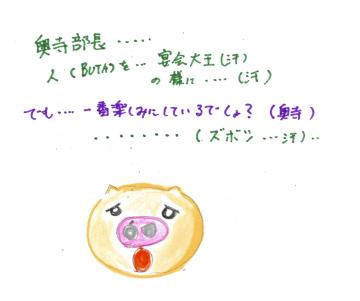 奥寺部長 ・・・・・
人(BUTA)を ・・・ 宴会大王(汗)
の様に ・・・・(汗)
でも・・・・ 一番楽しみにしているでしょ?(奥寺)
・・・・・・・・(ズボシ ・・・汗)・・